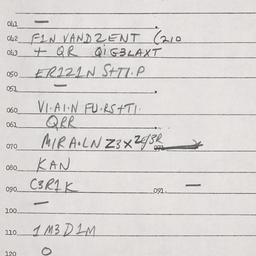 041 —
042 FIN VANDZENT (210
043 + QR QIG3LAXT
050 ER1Z1N S+TI.P
051 —
060 VI.AI.N FU.RS+TI.
061 QRR
070 MIRA.LN Z3X
080 KAN
090 C3R1K 091. —
100 —
110 1M3D1M
120 O